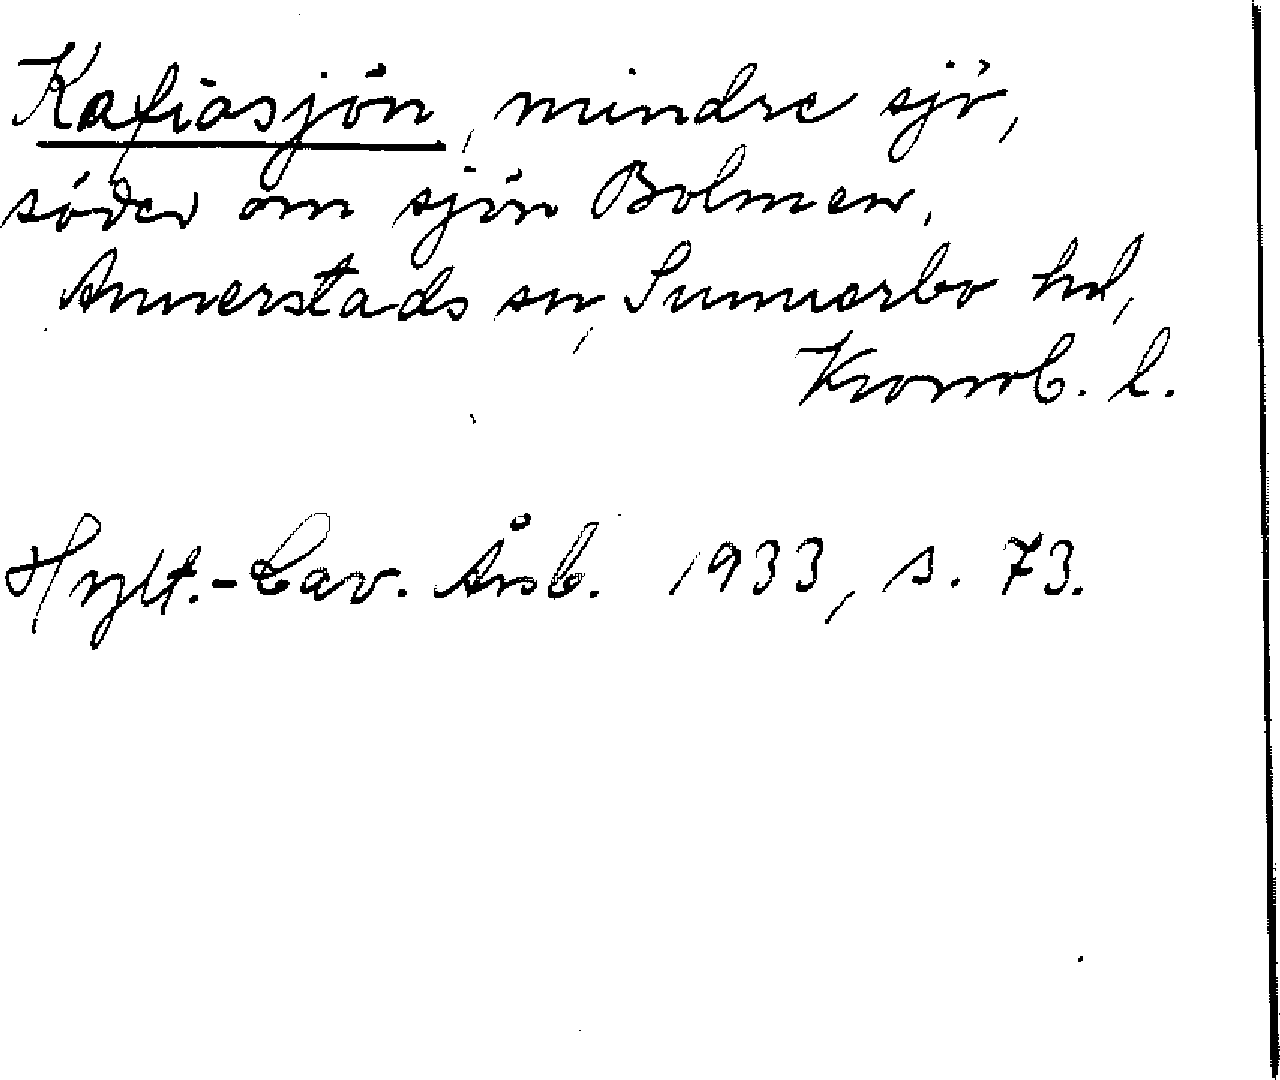 Kafiasjön, mindre sjö,
söder om sjön Bolmen,
Annerstads sn, Sunnerbo hd,
Kronob. l.
Hylt.-Cav. Årsb. 1933, s. 73.